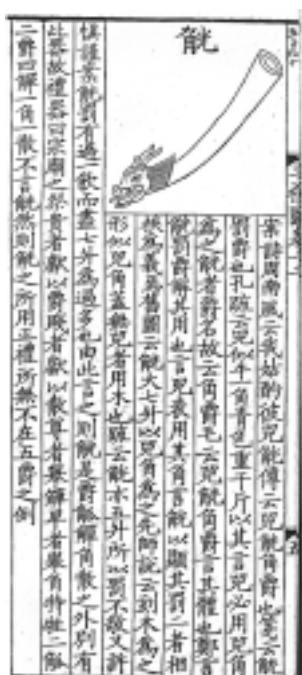 觥
案詩周南風云我姑酌彼兕觥傳云兕觥角爵也箋云觥
罰爵也孔疏云兕似牛一角青色重千斤以其言兕必用兕角
為之觥者爵名故云角爵毛云兕觥角爵言其體也鄭言
觥罰爵解其用也言兕表用其角言觥以顯其罰二者相
挾為義焉舊圖云觥大七升以兕角為之先師說云刻木為之
形似兕角蓋無兕者用木也疏云觥亦五升所以罰不敬又許
慎謹案觥罰有過一飲而盡七升為過多也由此言之則觥是爵觚觶角散之外別有
此器故禮器曰宗廟之祭貴者獻以爵賤者獻以散尊者舉觶卑者舉角特牲二觚
二爵四觶一角一散不言觥然則觥之所用正禮所無不在五爵之例